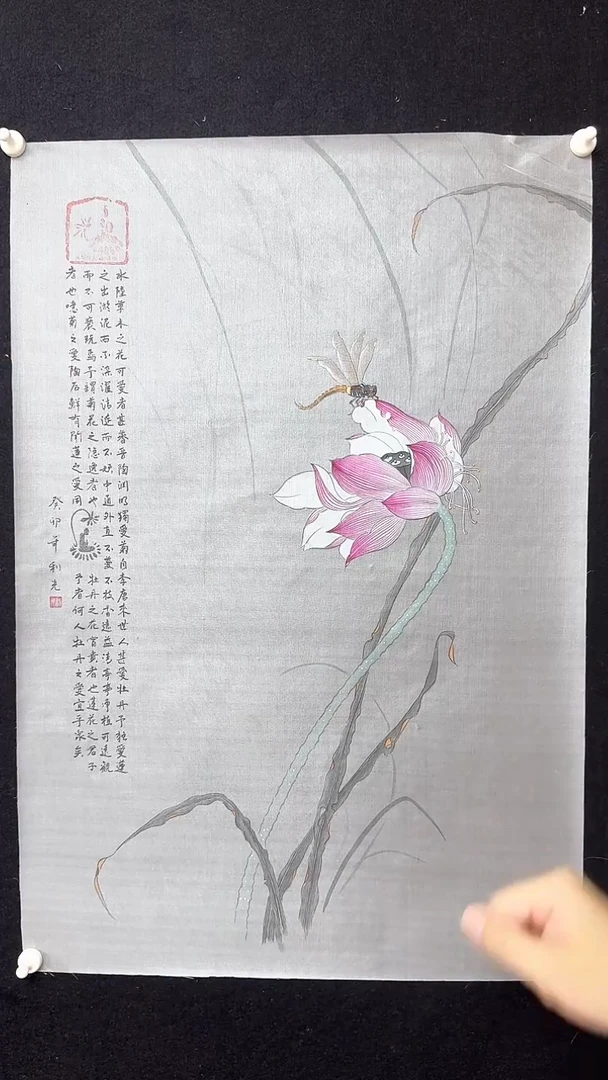 水陸草木之花可愛者甚蕃晉陶渊明獨愛菊自李唐來世人甚愛牡丹予独愛蓮
之出淤泥而不染濯清涟而不妖中通外直不蔓不枝香遠益清亭亭净植可遠觀
而不可褻玩焉予謂菊花之隐逸者也牡丹之花富貴者也蓮花之君子
者也噫菊之愛陶后鮮有闻蓮之愛同予者何人牡丹之愛宜乎眾矣
癸卯年利光